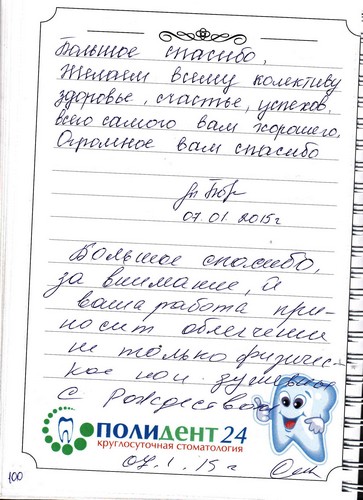 Большое спасибо,
Желаем всему колективу
здоровье, счастье, успехов,
всего самого вам хорошего,
Огромное вам спасибо
07.01.2015г
Большое спасибо,
за внимание, а
ваша работа при-
носит облегчение
не только физичес-
кое но и душевное
С Рождеством
ПОЛИДЕНТ 24
круглосуточная стоматология
07.1.15г
100